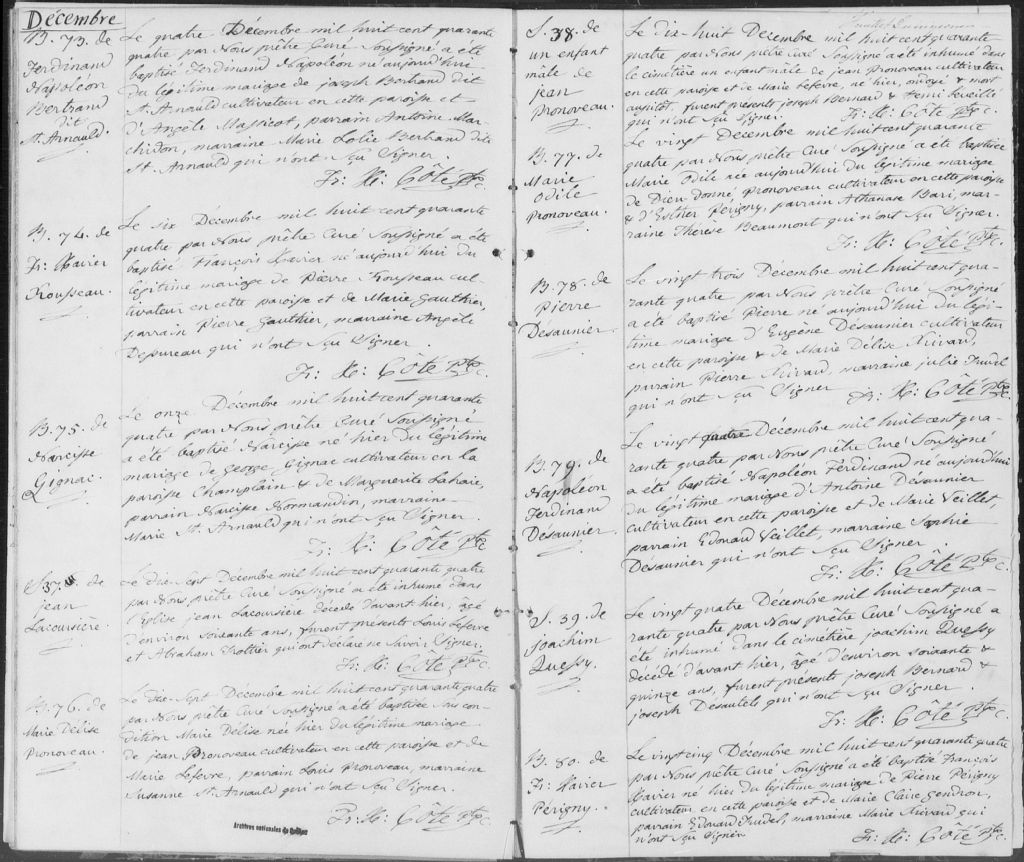 Décembre
B. 73. de
Ferdinand
Napoléon
Bertrand
dit
St. Arnauld.
Le quatre Décembre mil huit cent quarante
quatre par Nous prêtre Curé Soussigné a été
baptisé Ferdinand Napoléon né aujourd'hui
du légitime mariage de joseph Bertrand dit
St. Arnauld cultivateur en cette paroisse et
d'Angèle Massicot, parrain Antoine Mar-
chidon, marraine Marie Lolie Bertrand dite
St. Arnauld qui n'ont sçu Signer.
Fr: X: Côté Ptre c.
B. 74. de
Fr: Xavier
Rousseau.
Le six Décembre mil huit cent quarante
quatre par Nous prêtre Curé Soussigné a été
baptisé François Xavier né aujourd'hui du
légitime mariage de Pierre Rousseau cul-
tivateur en cette paroisse et de Marie Gauthier,
parrain Pierre Gauthier, marraine Angèle
Depureau qui n'ont sçu Signer.
Fr: X: Côté Ptre c.
B. 75. de
Narcisse
Gignac.
Le onze Décembre mil huit cent quarante
quatre par Nous prêtre Curé Soussigné
a été baptisé Narcisse né hier du légitime
mariage de George Gignac cultivateur en la
paroisse Champlain & de Marguerite Lahaie,
parrain Narcisse Normandin, marraine
Marie St. Arnauld qui n'ont sçu Signer.
Fr: X: Côté Ptre c.
S. 37. de
jean
Lacoursière.
Le dix-sept Décembre mil huit cent quarante quatre
par Nous prêtre Curé Soussigné a été inhumé dans
l'Eglise jean Lacoursière décédé d'avant hier, âgé
d'environ soixante ans, furent presents Louis Lefevre
et Abraham Trottier qui ont déclaré ne Savoir Signer.
Fr: X: Côté Ptre c.
B. 76. de
Marie Délise
Pronoveau.
Le dix-sept Décembre mil huit cent quarante quatre
par Nous prêtre Curé Soussigné a été baptisée sus con-
dition Marie Delise née hier du légitime mariage
de jean Pronoveau cultivateur en cette paroisse et de
Marie Lefevre, parrain Louis Pronoveau, marraine
Susanne St. Arnauld qui n'ont sçu Signer.
Fr: X: Côté Ptre c.
Archives nationales du Québec
S. 38. de
un enfant
male de
jean
Pronoveau.
Le dix-huit Décembre mil huit cent quarante
quatre par Nous prêtre Curé Soussigné a été inhumé dans
le cimetière un enfant mâle de jean Pronoveau cultivateur
en cette paroisse et de Marie Lefevre, né hier, ondoyé & mort
aussitôt, furent presents joseph Bernard & Henri Leveillé
qui n'ont sçu Signer. Fr: X: Côté Ptre c.
B. 77. de
Marie
Odile
Pronoveau.
Le vingt Décembre mil huit cent quarante
quatre par Nous prêtre Curé Soussigné a été baptisée
Marie Odil née aujourd'hui du légitime mariage
de Dieu donné Pronoveau cultivateur en cette paroisse
& d'Esther Périgny, parrain Athanase Bari, mar-
raine Thérèse Beaumont qui n'ont sçu Signer.
Fr: X: Côté Ptre c.
B. 78. de
Pierre
Desaunier.
Le vingt trois Décembre mil huit cent qua-
rante quatre par Nous prêtre Curé Soussigné
a été baptisé Pierre né aujourd'hui du légi-
time mariage d'Eugène Desaunier cultivateur
en cette paroisse & de Marie Délise Rivard,
parrain Pierre Rivard, marraine julie Trudel
qui n'ont sçu Signer Fr: X: Côté Ptre c.
B. 79. de
Napoléon
Ferdinand
Désaunier.
Le vingt quatre Décembre mil huit cent qua-
rante quatre par Nous prêtre Curé Soussigné
a été baptisé Napoléon Ferdinand né aujourd'hui
du légitime mariage d'Antoine Desaunier
cultivateur en cette paroisse et de Marie Veillet,
parrain Edouard Veillet, marraine Sophie
Desaunier qui n'ont sçu Signer.
Fr: X: Côté Ptre c.
S. 39. de
joachim
Quessy.
Le vingt quatre Décembre mil huit cent qua-
rante quatre, par Nous prêtre Curé Soussigné a
été inhumé dans le cimetière joachim Quessy
décédé d'avant hier, âgé d'environ soixante &
quinze ans, furent presents joseph Bernard &
joseph Desautels qui n'ont sçu Signer.
Fr: X: Côté Ptre c.
B. 80. de
Fr: Xavier
Périgny.
Le vingt cinq Décembre mil huit cent quarante quatre
par Nous prêtre Curé Soussigné a été baptisé François
Xavier né hier du légitime mariage de Pierre Périgny
cultivateur en cette paroisse et de Marie Claire Gendron,
parrain Edouard Trudel, marraine Marie Rivard qui
n'ont sçu Signer Fr: X: Côté Ptre c.